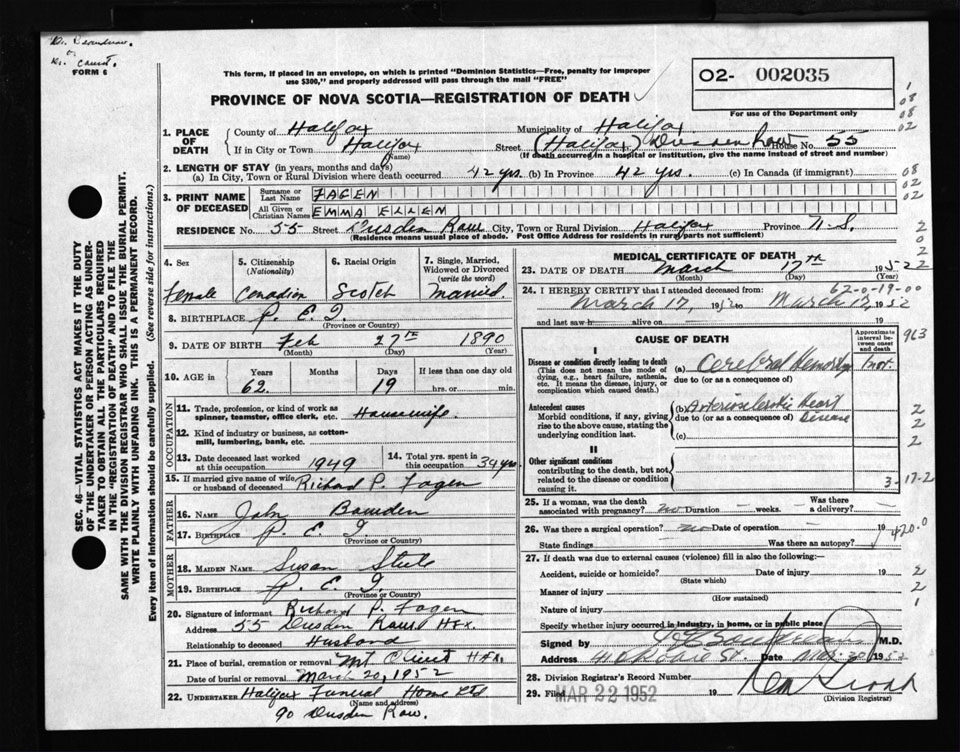 Dr.
or
Dr.
FORM 6
This form, if placed in an envelope, on which is printed "Dominion Statistics—Free, penalty for improper
use $300," and properly addressed will pass through the mail "FREE"
O2- 002035
PROVINCE OF NOVA SCOTIA—REGISTRATION OF DEATH
For use of the Department only
1. PLACE OF DEATH
County of Halifax Municipality of Halifax
If in City or Town Halifax (Name) Street (Halifax) Dresden Row House No. 55
(If death occurred in a hospital or institution, give the name instead of street and number)
2. LENGTH OF STAY (in years, months and days)
(a) In City, Town or Rural Division where death occurred 42 yrs. (b) In Province 42 yrs. (c) In Canada (if immigrant)
3. PRINT NAME OF DECEASED
Surname or Last Name FAGEN
All Given or Christian Names EMMA ELLEN
RESIDENCE No. 55 Street Dresden Row City, Town or Rural Division Halifax Province N.S.
(Residence means usual place of abode. Post Office Address for residents in rural parts not sufficient)
4. Sex
Female
5. Citizenship (Nationality)
Canadian
6. Racial Origin
Scotch
7. Single, Married, Widowed or Divorced (write the word)
Married.
8. BIRTHPLACE P. E. I.
(Province or Country)
9. DATE OF BIRTH Feb 27th 1890
(Month) (Day) (Year)
10. AGE in Years Months Days If less than one day
62 19 hrs. or min.
OCCUPATION
11. Trade, profession, or kind of work as
spinner, teamster, office clerk, etc. Housewife
12. Kind of industry or business, as cotton-
mill, lumbering, bank, etc.
13. Date deceased last worked at this occupation 1949 14. Total yrs. spent in this occupation 34 yrs.
15. If married give name of wife
or husband of deceased Richard P. Fagen
FATHER
16. NAME John Bowden
17. BIRTHPLACE P. E. I.
(Province or Country)
MOTHER
18. MAIDEN NAME Susan
19. BIRTHPLACE P. E. I.
(Province or Country)
20. Signature of informant Richard P. Fagen
Address 55 Dresden Row Hfx.
Relationship to deceased Husband
21. Place of burial, cremation or removal Mt Olivet Hfx.
Date of burial or removal March 20, 1952
22. UNDERTAKER Halifax Funeral Home Ltd
(Name and address)
90 Dresden Row.
MEDICAL CERTIFICATE OF DEATH
23. DATE OF DEATH March 17th 1952
(Month) (Day) (Year)
62-0-19-00
24. I HEREBY CERTIFY that I attended deceased from:
March 17, 1952 to March 17, 1952
and last saw h alive on 19
CAUSE OF DEATH
Approximate interval between onset and death
I
Disease or condition directly leading to death
(This does not mean the mode of dying, e.g., heart failure, asthenia, etc. It means the disease, injury, or complication which caused death.)
(a) Cerebral Hemorrhage
due to (or as a consequence of)
Antecedent causes
Morbid conditions, if any, giving rise to the above cause, stating the underlying condition last.
(b) Arteriosclerotic heart
due to (or as a consequence of) Disease
(c)
II
Other significant conditions
contributing to the death, but not related to the disease or condition causing it.
3-17-2
25. If a woman, was the death associated with pregnancy? no Duration weeks. Was there a delivery?
26. Was there a surgical operation? no Date of operation 19
State findings Was there an autopsy?
420.0
27. If death was due to external causes (violence) fill in also the following:—
Accident, suicide or homicide? Date of injury 19
(State which)
Manner of injury
(How sustained)
Nature of injury
Specify whether injury occurred in industry, in home, or in public place
Signed by M.D.
Address St. Date 1952
28. Division Registrar's Record Number
29. Filed MAR 22 1952 19
(Division Registrar)
SEC. 46—VITAL STATISTICS ACT MAKES IT THE DUTY
OF THE UNDERTAKER OR PERSON ACTING AS UNDER-
TAKER TO OBTAIN ALL THE PARTICULARS REQUIRED
IN THE "REGISTRATION OF DEATH" AND TO FILE THE
SAME WITH THE DIVISION REGISTRAR WHO SHALL ISSUE THE BURIAL PERMIT.
WRITE PLAINLY WITH UNFADING INK. THIS IS A PERMANENT RECORD.
Every item of information should be carefully supplied. (See reverse side for instructions.)
1
08
08
02
08
02
02
2
0
2
22
963
2
2
2
2
2
1